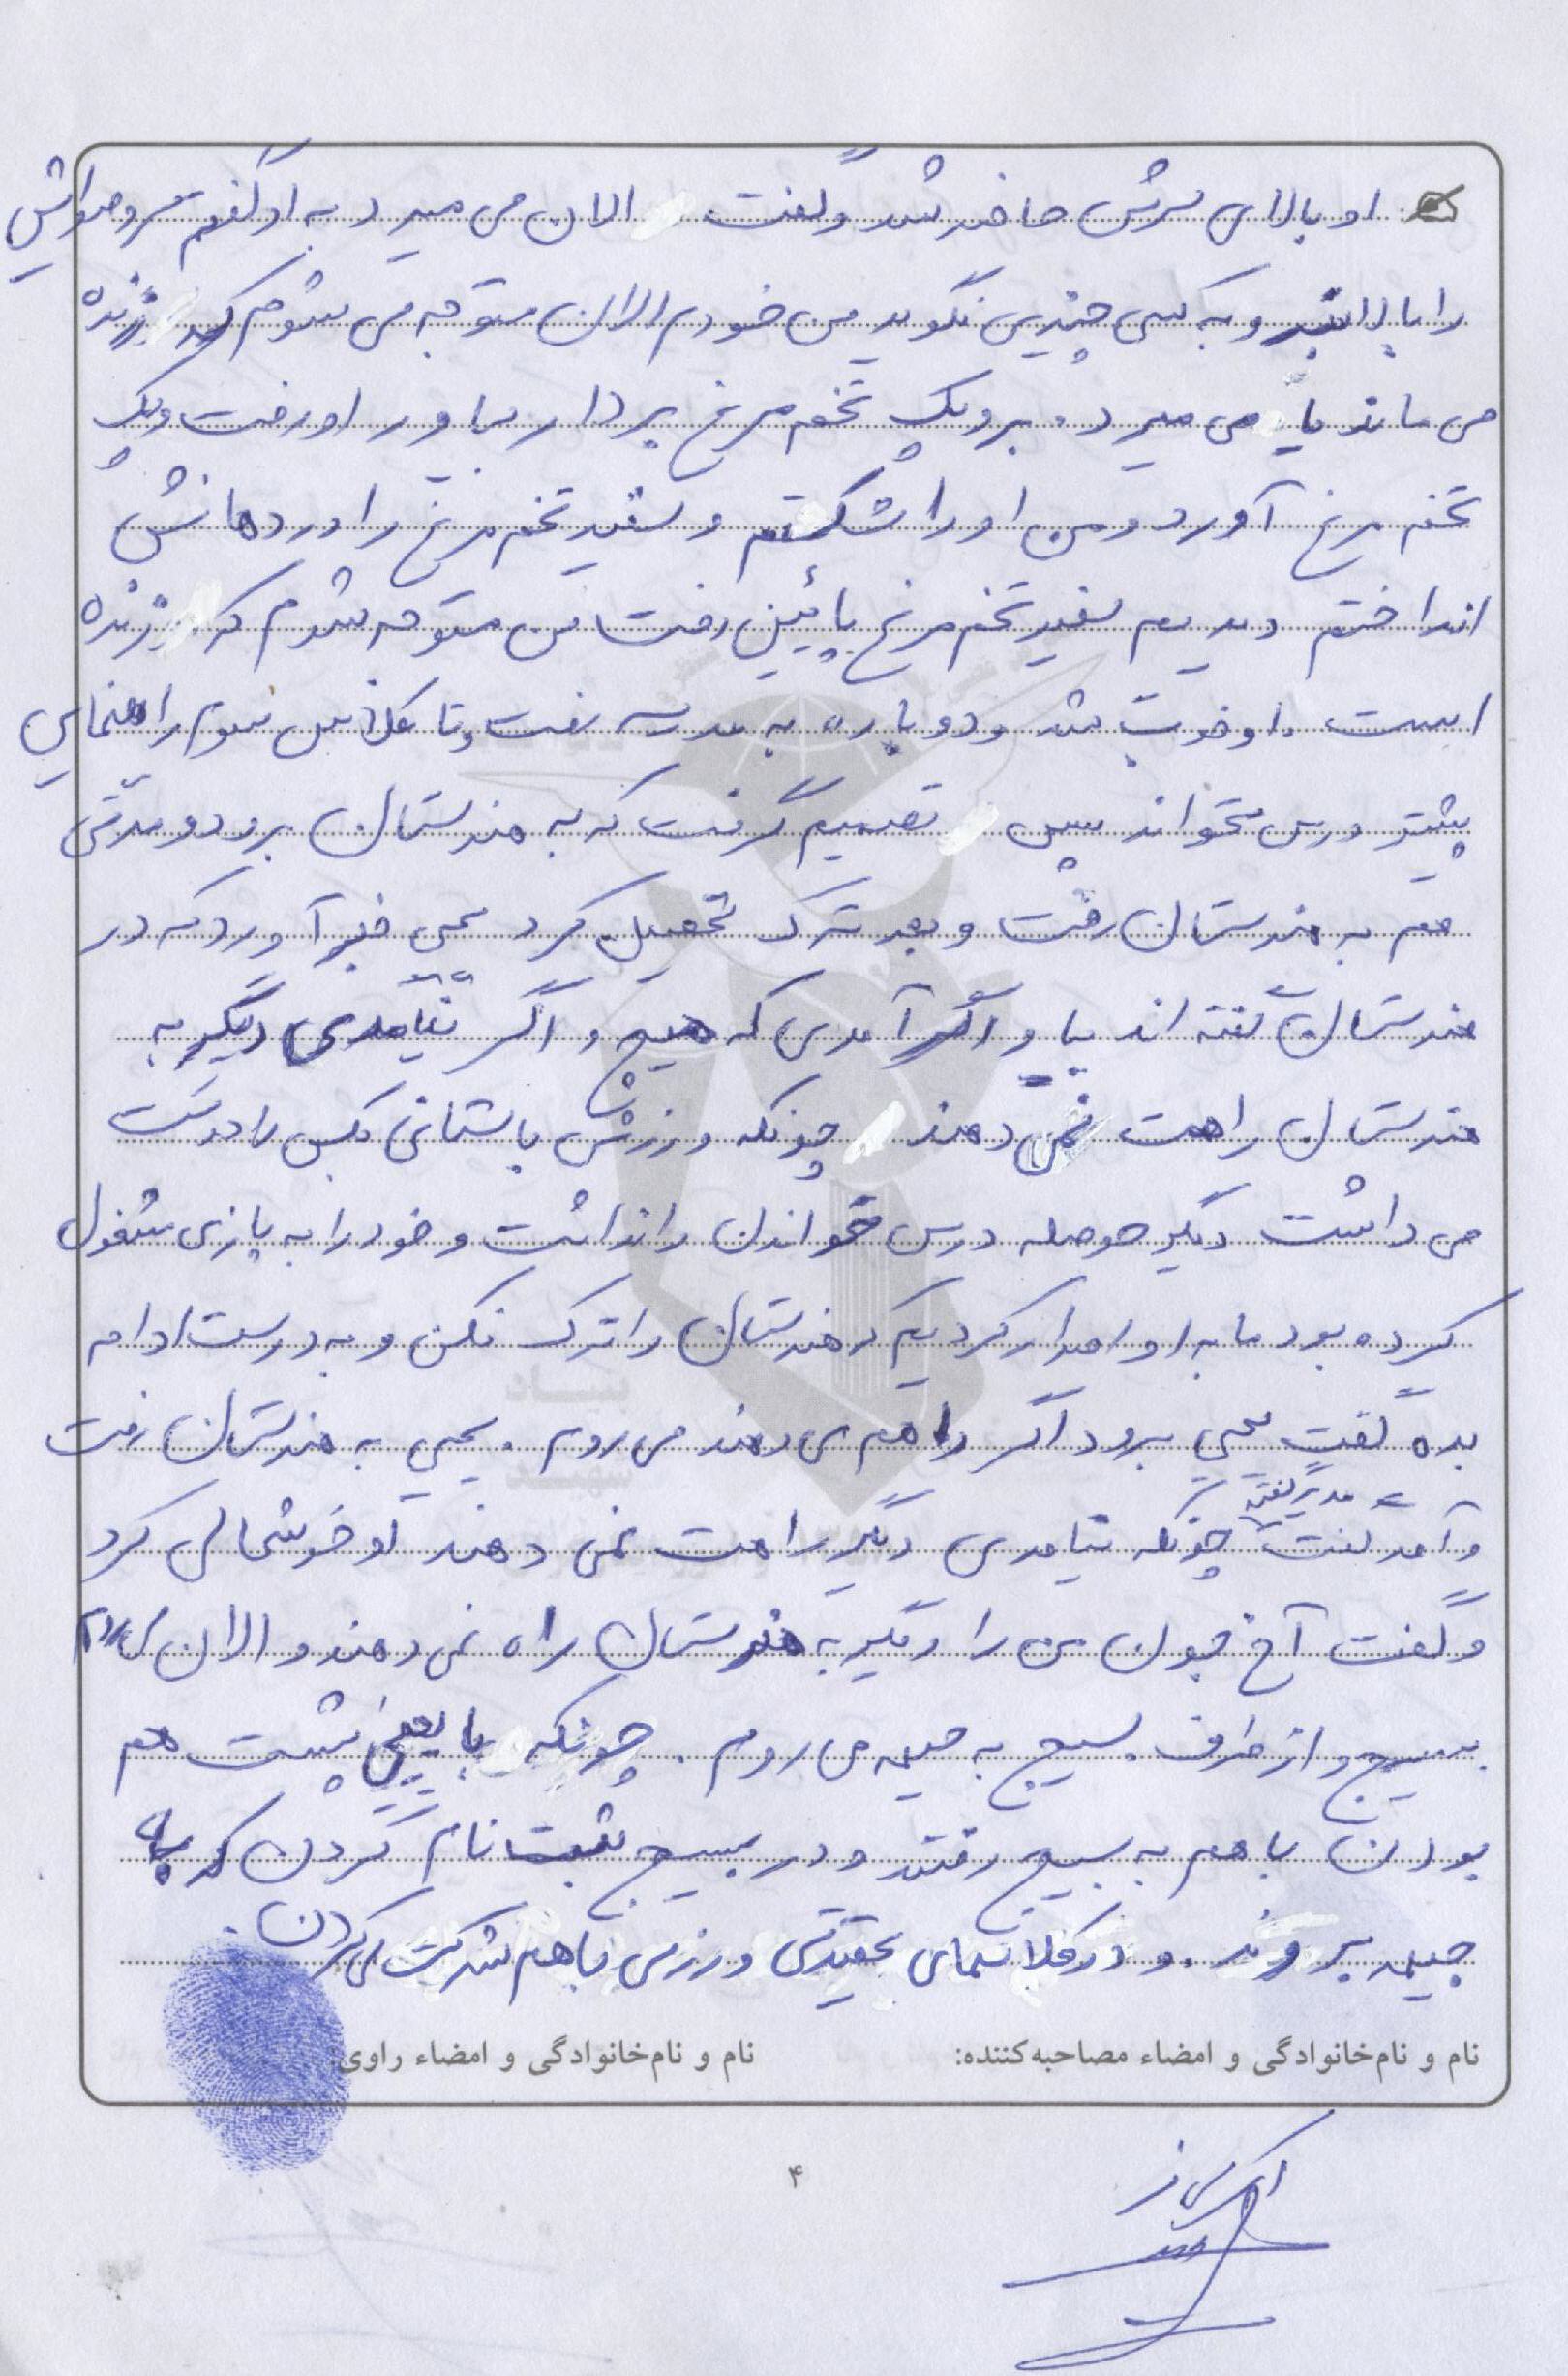 او بالای سرش حاضر شد و گفت الان می میرد به او گفتم سر و صدایش
را بالا نبر و به کسی چیزی نگوید من خودم الان متوجه می شوم که زنده
می ماند یا می میرد. برو یک تخم مرغ بردار بیاور او رفت و یک
تخم مرغ آورد و من او را شکستم و سفید تخم مرغ را در دهانش
انداختم دیدیم سفید تخم مرغ پائین رفت من متوجه شدم که زنده
است. او خوب شد و دوباره به مدرسه رفت و تا کلاس سوم راهنمایی
بیشتر درس نخواند سپس تصمیم گرفت که به هنرستان برود و مدتی
هم به هنرستان رفت و بعد ترک تحصیل کرد یحیی خبر آورد که در
هنرستان گفته اند بیا و اگر آمدی که هیچ و اگر نیامدی دیگر به
هنرستان راهت نمی دهند چونکه ورزش باستانی بکس را دوست
می داشت دیگر حوصله درس خواندن را نداشت و خود را به بازی مشغول
کرده بود ما به او اصرار کردیم که هنرستان را ترک نکن و به درست ادامه
بده گفت یحیی برود اگر راهم می دهند می روم. یحیی به هنرستان رفت
و آمد گفت مدیر گفته چونکه نیامدی دیگر راهت نمی دهند او خوشحالی کرد
و گفت آخ جون من را دیگر به هنرستان راه نمی دهند و الان می روم
بسیج و از طرف بسیج به جبهه می روم. چونکه با یحیی پشت هم
بودن با هم به بسیج رفتند و در بسیج ثبت نام کردن که به
جبهه بروند. و در کلاسهای عقیدتی و رزمی با هم شرکت می کردن.
نام و نام‌خانوادگی و امضاء مصاحبه‌کننده:
نام و نام‌خانوادگی و امضاء راوی:
۴